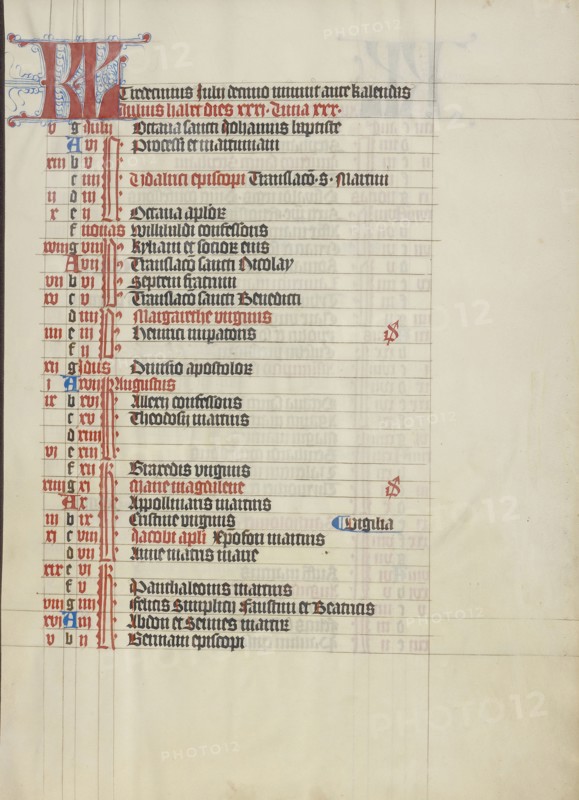 KL Tredecimus Julij decimo innuit ante kalendas
Julius habet dies xxxi. Luna xxx.
v g Julij Octava sancti Johannis baptiste
A vi Processi et martiniani
xiii b v
c iiii Udalrici episcopi Translaco. S. Martini
ii d iii
x e ii Octava aplor
f nonas Willibaldi confessoris
xviii g viii Kyliani et socior eius
A vii Translaco sancti Nicolay
vii b vi Septem fratrum
xv c v Translaco sancti Benedicti
d iiii Margarethe virginis
iiii e iii Heinrici imperatoris
f ii
xii g Idus Divisio apostolor
i A xvii Augustus
ix b xvi Allexij confessoris
c xv Theodosij martiris
d xiiii
vi e xiii
f xii Braxedis virginis
xiiii g xi Marie magdalene
A x Appollinaris martiris
iii b ix Cristine virginis Vigilia
xi c viii Jacobi apli Xpofori martiris
d vii Anne matris marie
xix e vi
f v Panthaleonis martiris
viii g iiii Felicis Simplicij Faustini et Beatricis
xvi A iii Abdon et Sennes martir
v b ii Germani episcopi
PHOTO12